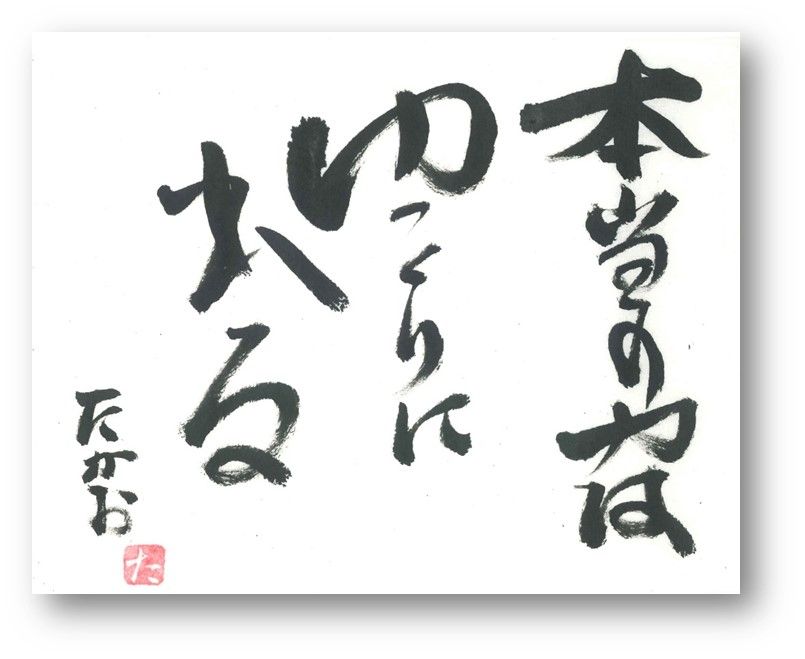 本当の力は
ゆっくりに
出る
たかお
た